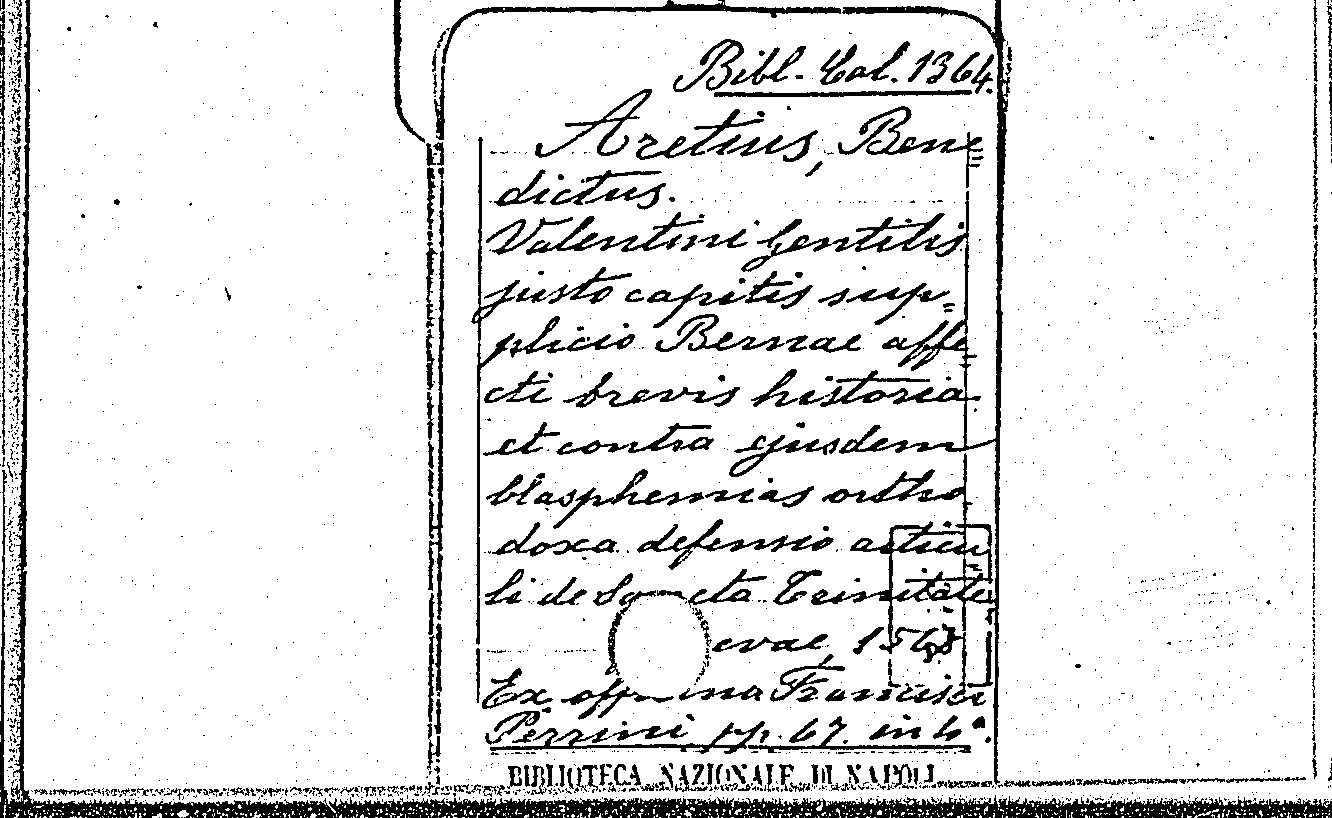 Bibl. Cal. 1364.
Aretius, Bene=
dictus.
Valentini Gentilis
justo capitis sup=
plicio Bernae affe=
cti brevis historia
et contra ejusdem
blasphemias ortho
doxa defensio articu=
li de Sancta Trinitate
evae,
Ex officina Francisci
Perrini pp. 67. in 4°.
BIBLIOTECA NAZIONALE DI NAPOLI